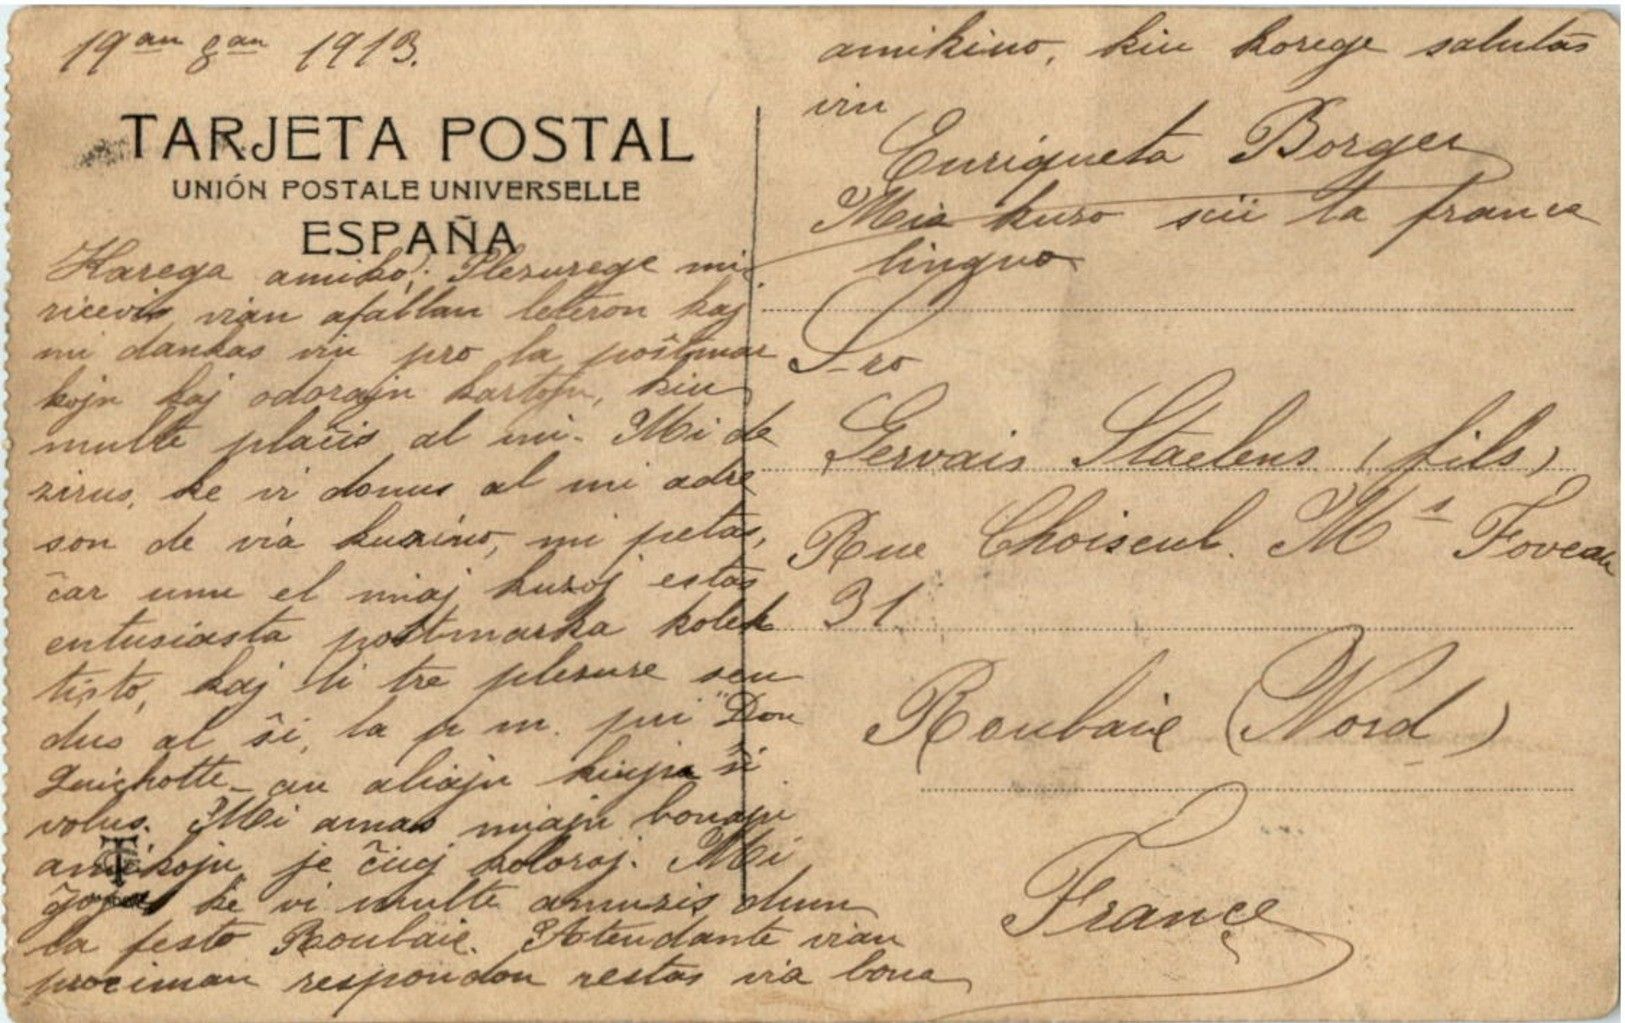 19an 8an 1913.
TARJETA POSTAL
UNIÓN POSTALE UNIVERSELLE
ESPAÑA
Karega amiko; Plezurege mi
ricevis vian afablan leteron kaj
mi dankas vin pro la poŝtmar
kojn kaj odorajn kartojn, kiu
multe plaĉis al mi. Mi de
zirus, ke vi donus al mi adre
son de via kuzino, mi petas,
ĉar unu el miaj kuzoj estas
entusiasta postmarka kolek
tisto, kaj li tre plezure sen
dus al ŝi, la p m. pri "Don
Quichotte_ au aliajn kiujn ŝi
volus. Mi amas miajn bonajn
amikojn je ĉiuj koloroj. Mi
ĝojas ke vi multe amuzis dum
T
la festo Roubaix. Atendante vian
prociman respondon restas via bona
amikino, kiu korege salutas
vin
Enriqueta Borger
Mia kuzo scii la franca
lingvo
S-ro
Gervais Staelens (fils)
Rue Choiseul. Mˢ Foveau
31
Roubaix (Nord)
France